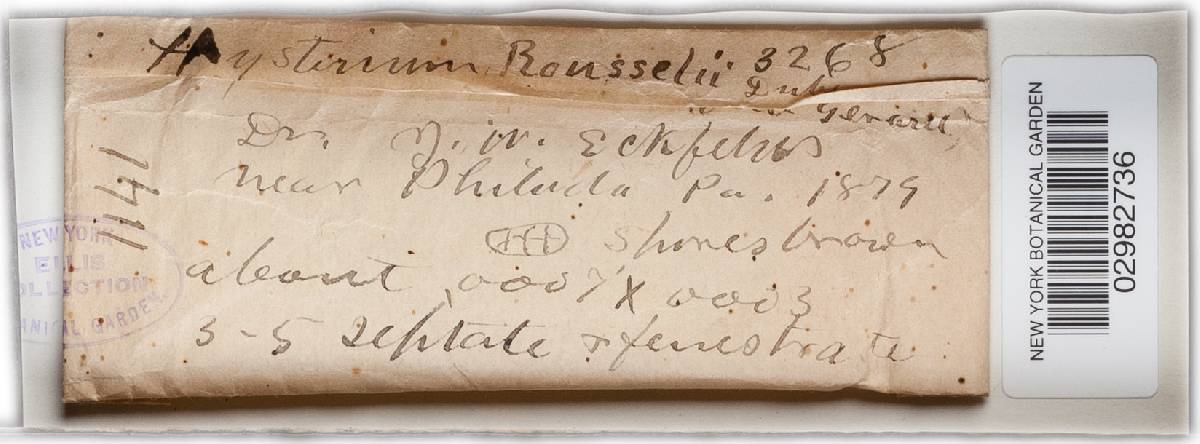 Hystirium Rousselii 3268
Duby
Gerard
Dr. J. W. Eckfeldt
near Philada Pa. 1879
Spores brown
about .0007 X .0003
3-5 septate & fenestrate
1141
NEW YORK
ELLIS
OLLECTION
ANICAL GARDEN
NEW YORK BOTANICAL GARDEN
02982736